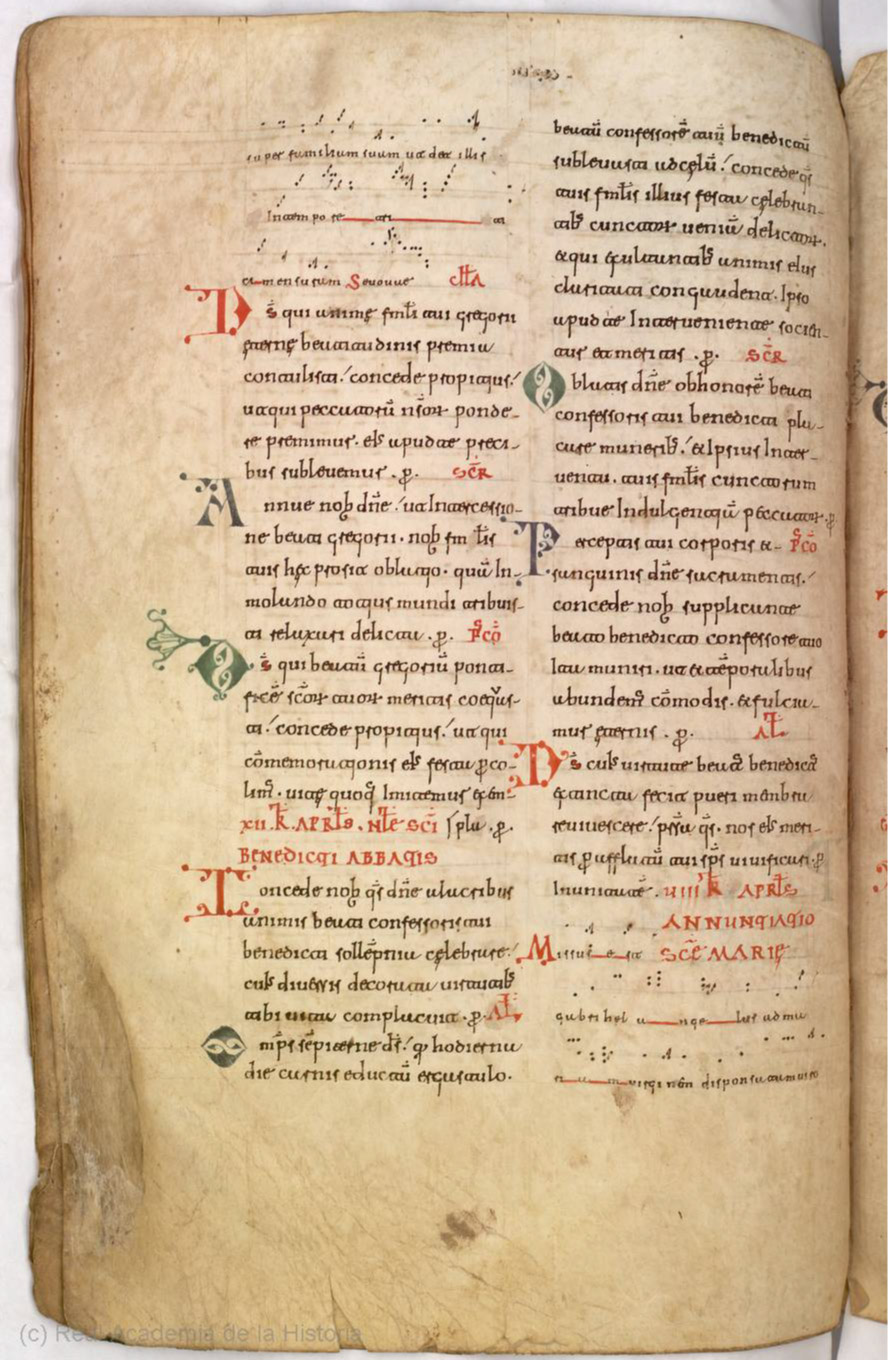 super familiam suam ut det illis
In tempore tri ti
ci mensuram Seuouae cłła
Ds̄ qui animę famłi tui gregorii
ęternę beatitudinis premia
contulisti. concede propitius.
ut qui peccatorū nsōr ponde-
re premimur. eis apud te preci-
bus sublevemur. p. SC̄R
Annue nob dn̄e. ut intercessio-
ne beati gregorii. nob fmłis
tuis hęc prosit oblatio. quā In-
molando totius mundi tribuis-
ti relaxari delicta. p. P̄CŌ
Ds̄ qui beatū gregoriū ponti-
ficē sc̄or tuor meritis coequas-
ti. concede propitius. ut qui
cōmemorationis eis festa p co-
lim̄. vitę quoq Imitemur exēm
XII K APRLS. NTE SCI pla. p.
BENEDICTI ABBATIS
Concede nob qs̄ dn̄e alacribus
animis beati confessoris tui
benedicti sollēpnia cęlebrare.
cuis diversis decorata virtutib
tibi vita complacuit. p. AL
Omps̄ sēpiterne ds̄. qp hodierna
die carnis eductū ergastulo.
beatū confessorē tuū benedictū
sublevasti ad cęlū. concede qs̄
tuis fmłis illius festa cęlebran-
tib cunctor veniā delictor.
et qui exultantib animis eius
claritati congaudent. Ipso
apud te Interveniente socien-
tur et meritis. p. SC̄R
Oblatis dn̄e ob honorē beati
confessoris tui benedicti pla-
care munerib. et Ipsius Inter-
ventu. tuis fmłis cunctorum
tribue Indulgentiā peccator. p.
Perceptis tui corporis et P̄CŌ
sanguinis dn̄e sacramentis.
concede nob supplicante
beato benedicto confessore tuo
ita muniri. ut et tēporalibus
abundem̄ cōmodis. et fulcia-
mur ęternis. p. AL
Ds̄ cuis virtute beatus benedict̄
extincta fecit pueri mēnbra
revivescere. prsta qs̄. nos eis meri-
tis p afflatū tui sps̄ vivificari. p
In unitate. VIIII K APRLS
ANNUNTIATIO
Missus est SCE MARIE
gabrihel a nge lus ad ma
ri a m virginēm disponsatam ioseo